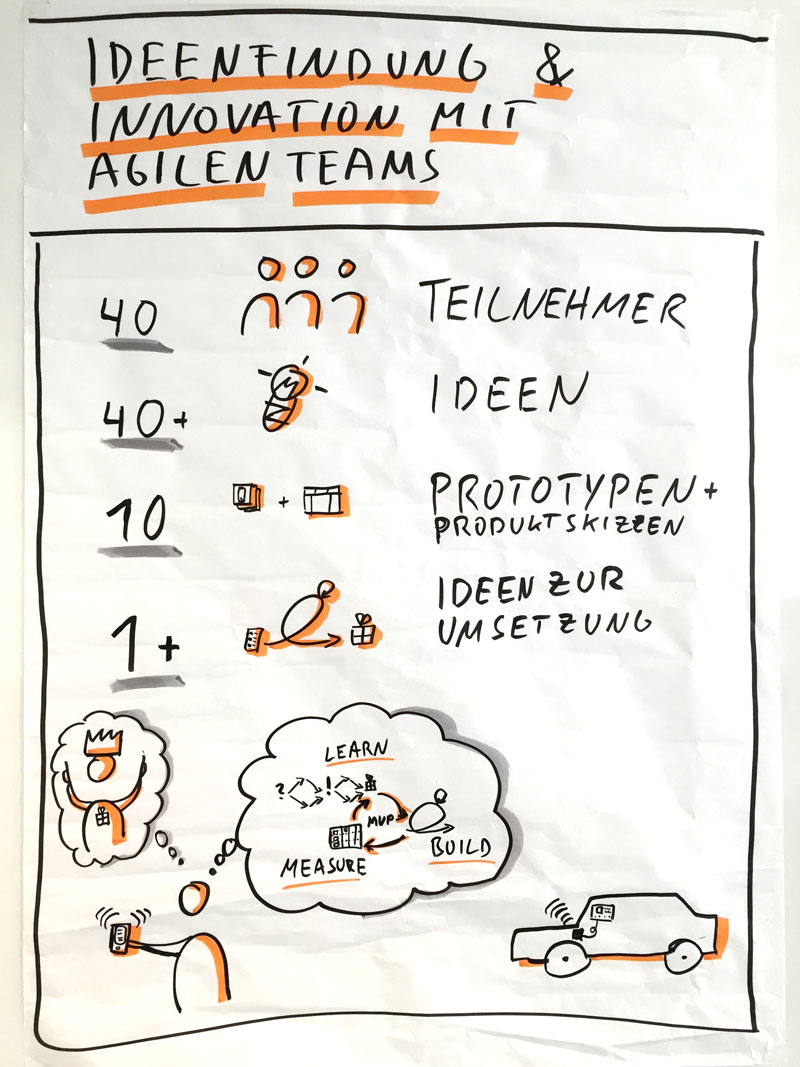 IDEENFINDUNG &
INNOVATION MIT
AGILEN TEAMS
40 TEILNEHMER
40+ IDEEN
10 + PROTOTYPEN +
PRODUKTSKIZZEN
1+ IDEEN ZUR
UMSETZUNG
LEARN
? !
MVP
MEASURE BUILD